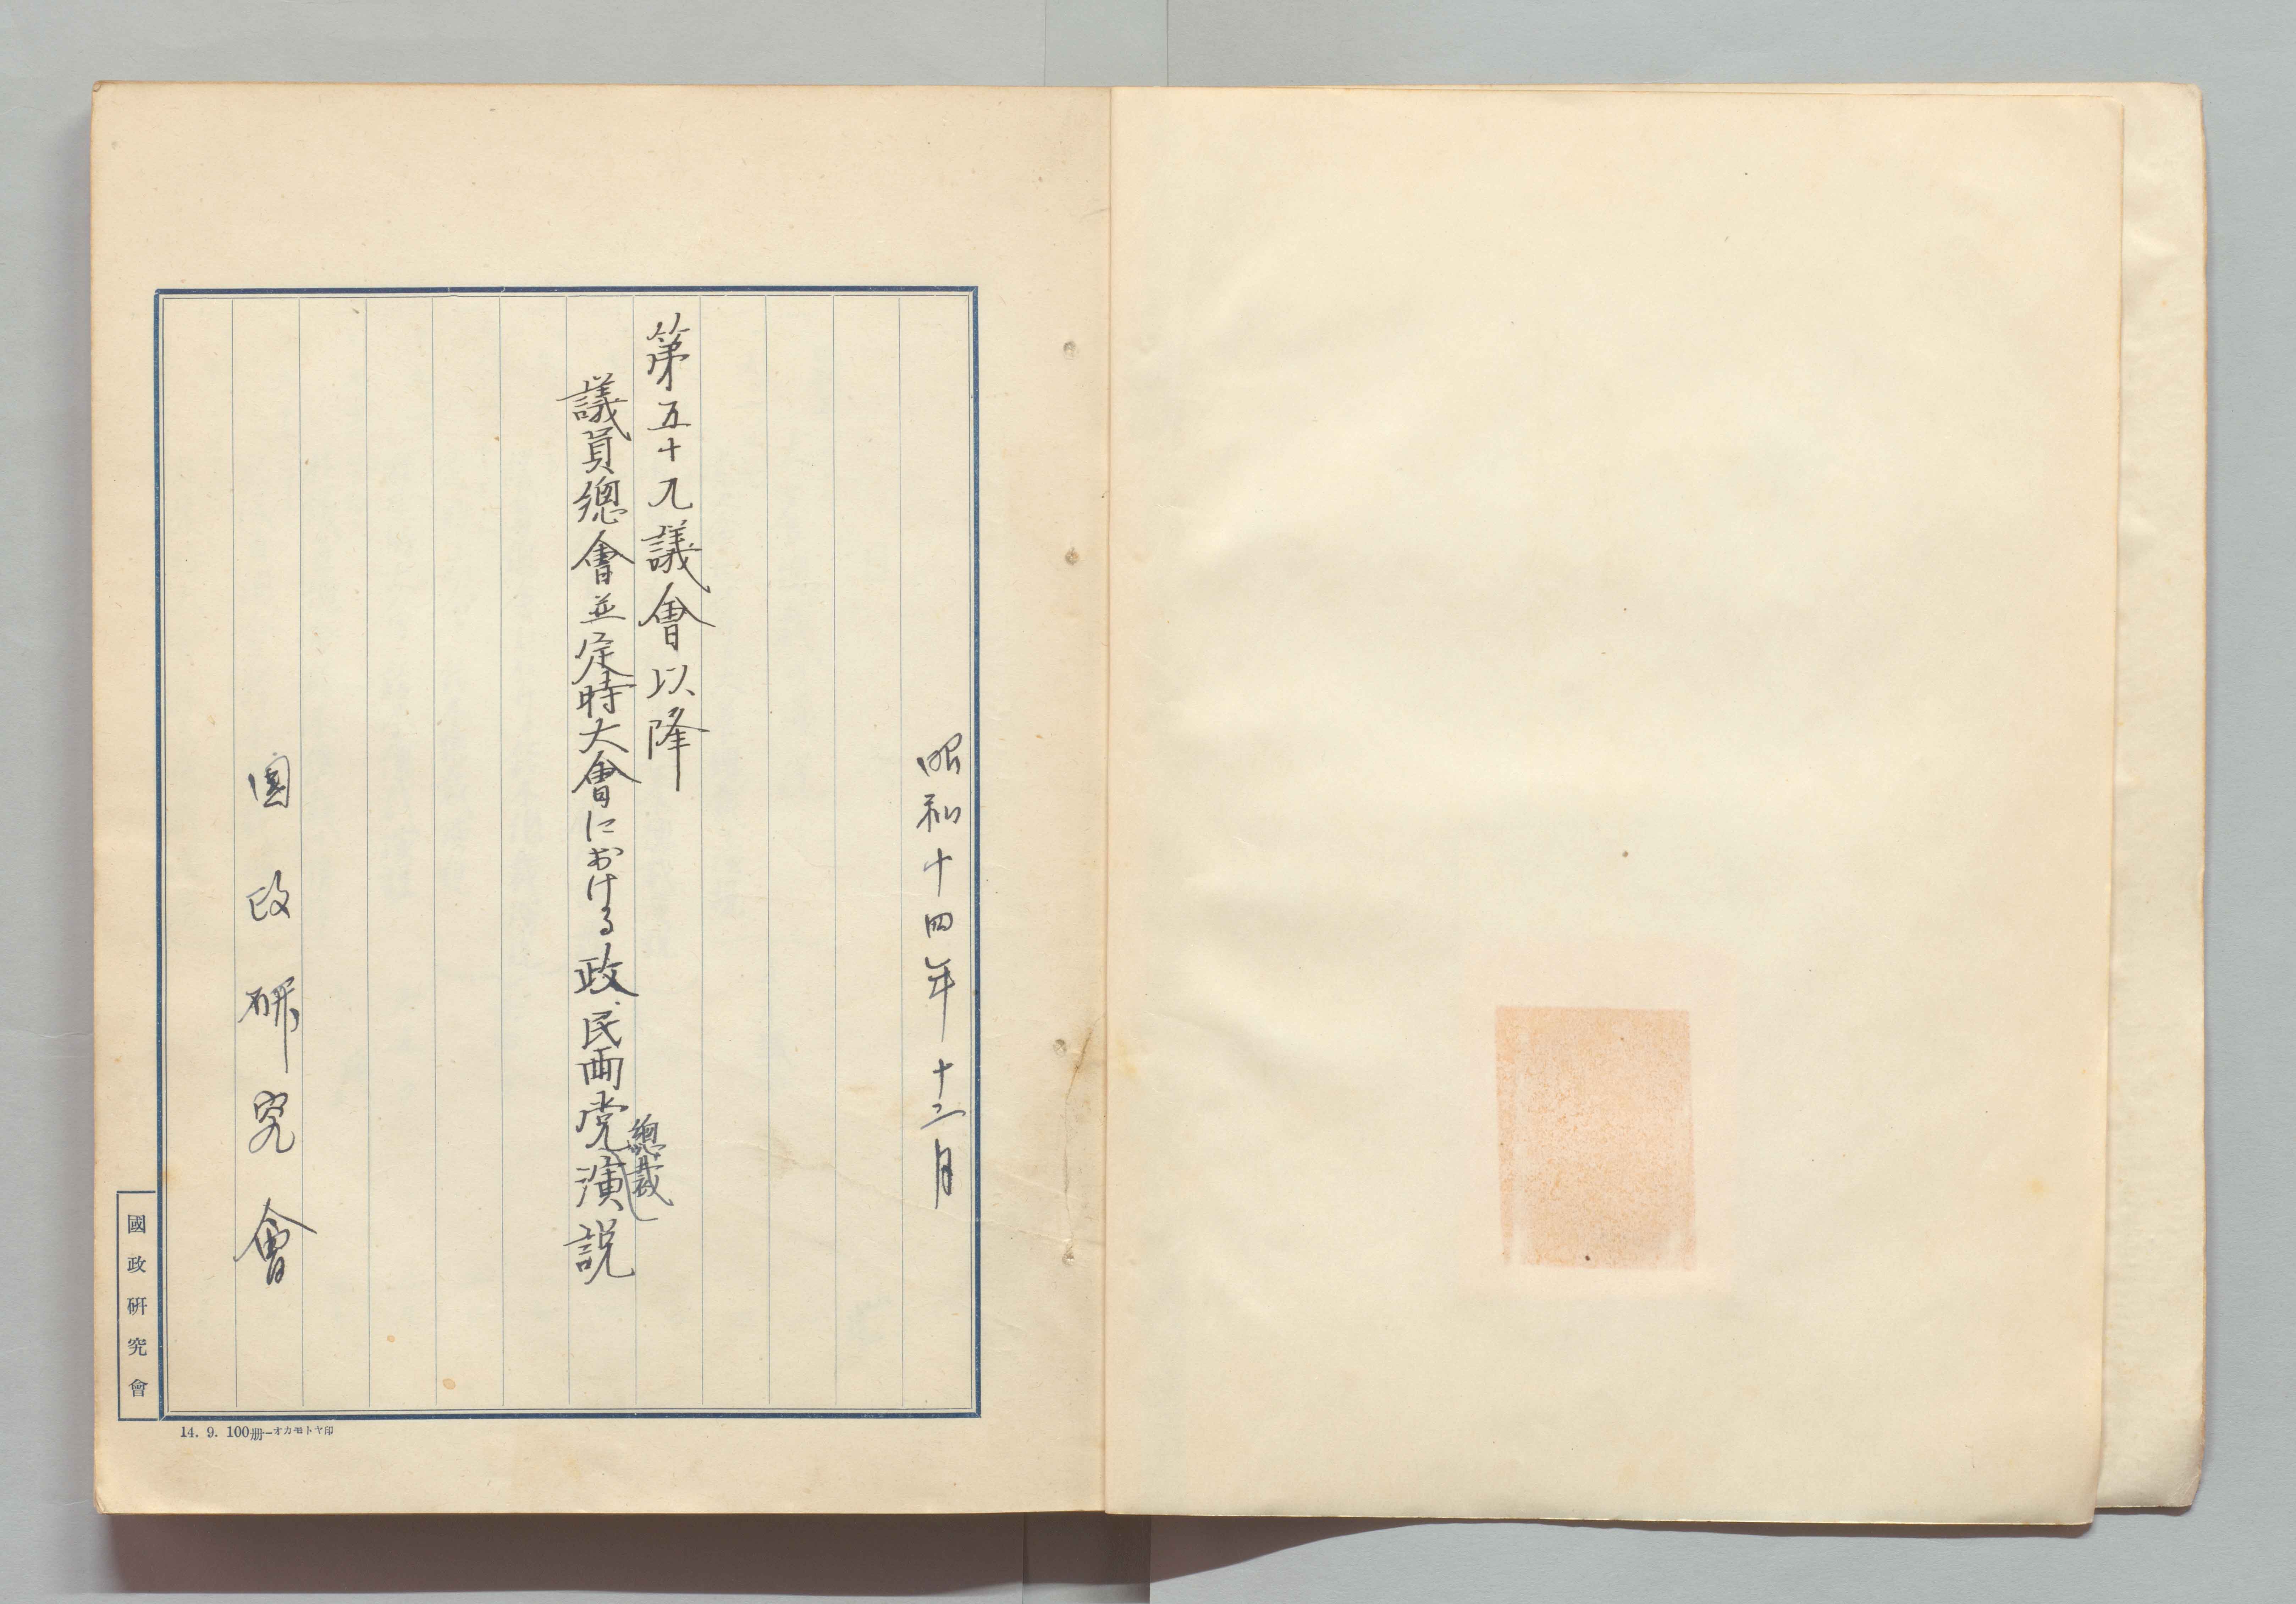 昭和十四年十二月
第五十九議會以降
議員總會並定時大會における政、民両党總裁演説
國政研究會
國政研究會
14. 9. 100册—オカモトヤ印